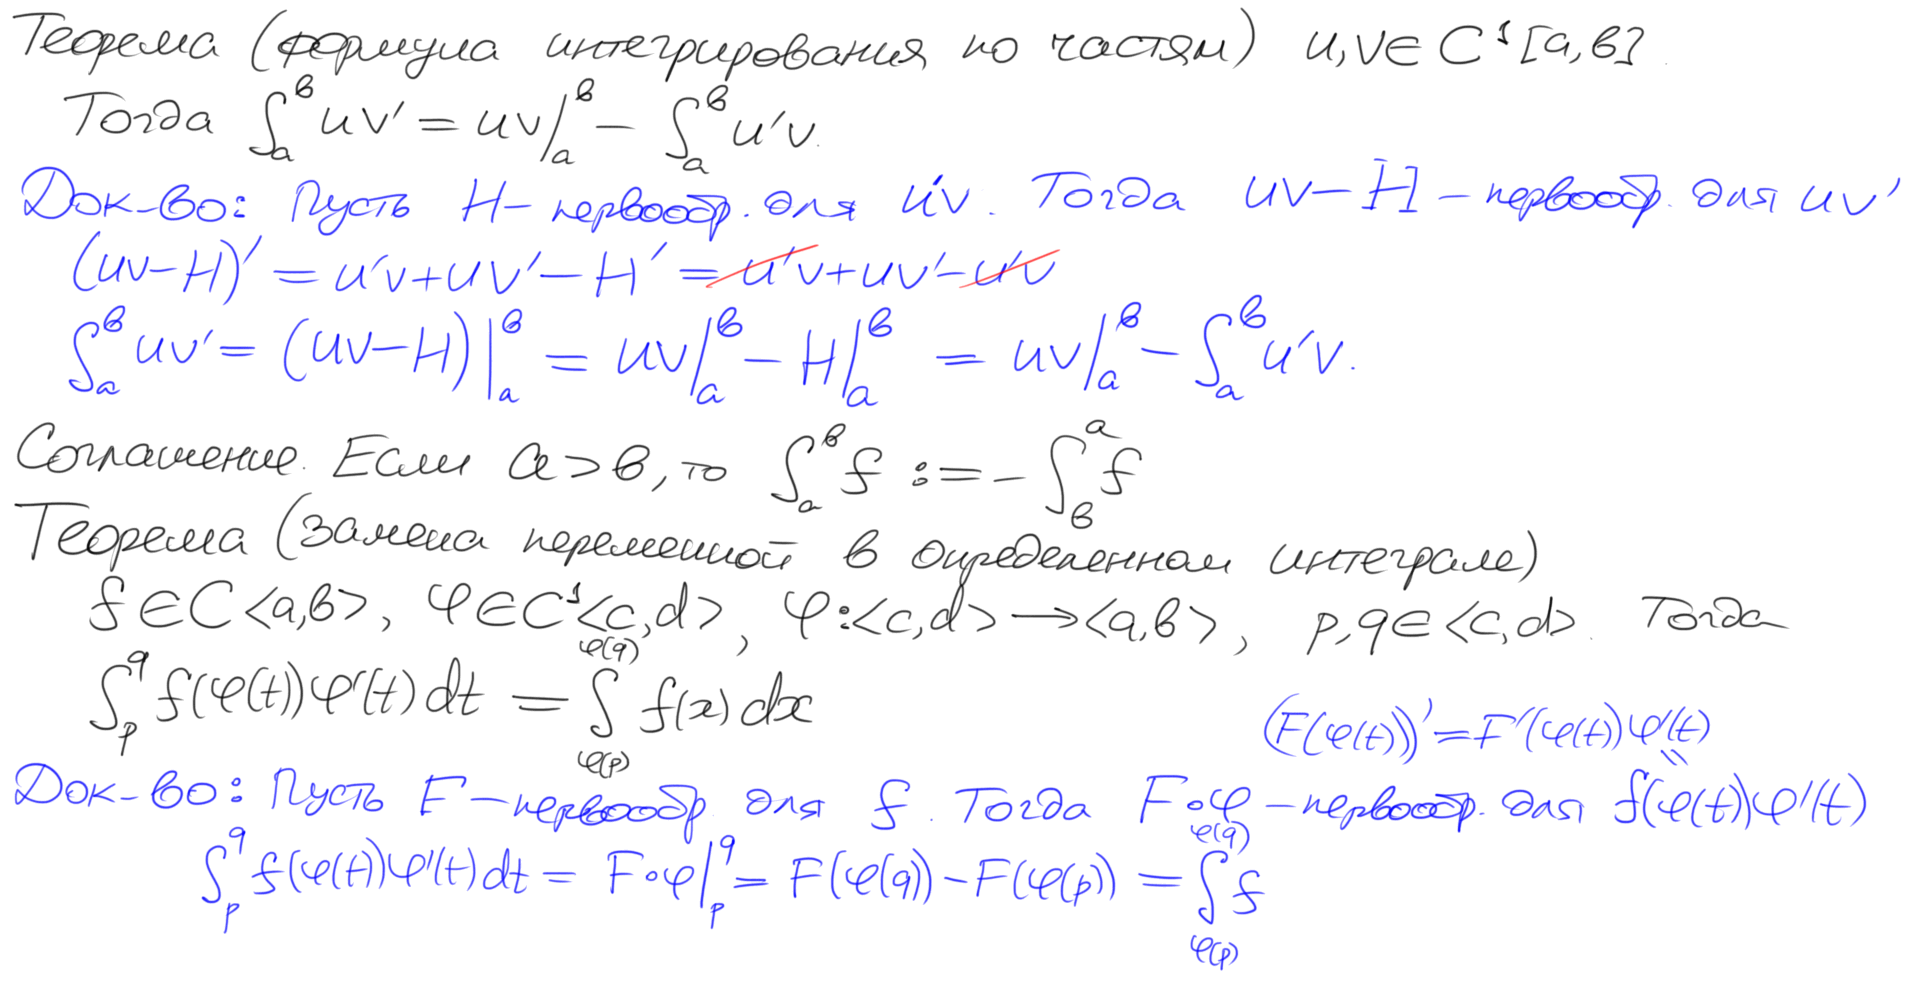 Теорема (формула интегрирования по частям) u,v∈C¹[a,b].
Тогда ∫ₐᵇ uv' = uv|ₐᵇ − ∫ₐᵇ u'v.
Док-во: Пусть H – первообр. для u'v. Тогда uv−H – первообр. для uv'
(uv−H)' = u'v+uv'−H' = u'v+uv'−u'v
∫ₐᵇ uv' = (uv−H)|ₐᵇ = uv|ₐᵇ − H|ₐᵇ = uv|ₐᵇ − ∫ₐᵇ u'v.
Соглашение. Если a>b, то ∫ₐᵇ f := −∫_b^a f
Теорема (замена переменной в определенном интеграле)
f∈C<a,b>, φ∈C¹<c,d>, φ:<c,d>→<a,b>, p,q∈<c,d>. Тогда
∫_p^q f(φ(t))φ'(t)dt = ∫_{φ(p)}^{φ(q)} f(x)dx
(F(φ(t)))' = F'(φ(t))φ'(t)
=
Док-во: Пусть F – первообр для f. Тогда F∘φ – первообр. для f(φ(t))φ'(t)
∫_p^q f(φ(t))φ'(t)dt = F∘φ|_p^q = F(φ(q))−F(φ(p)) = ∫_{φ(p)}^{φ(q)} f